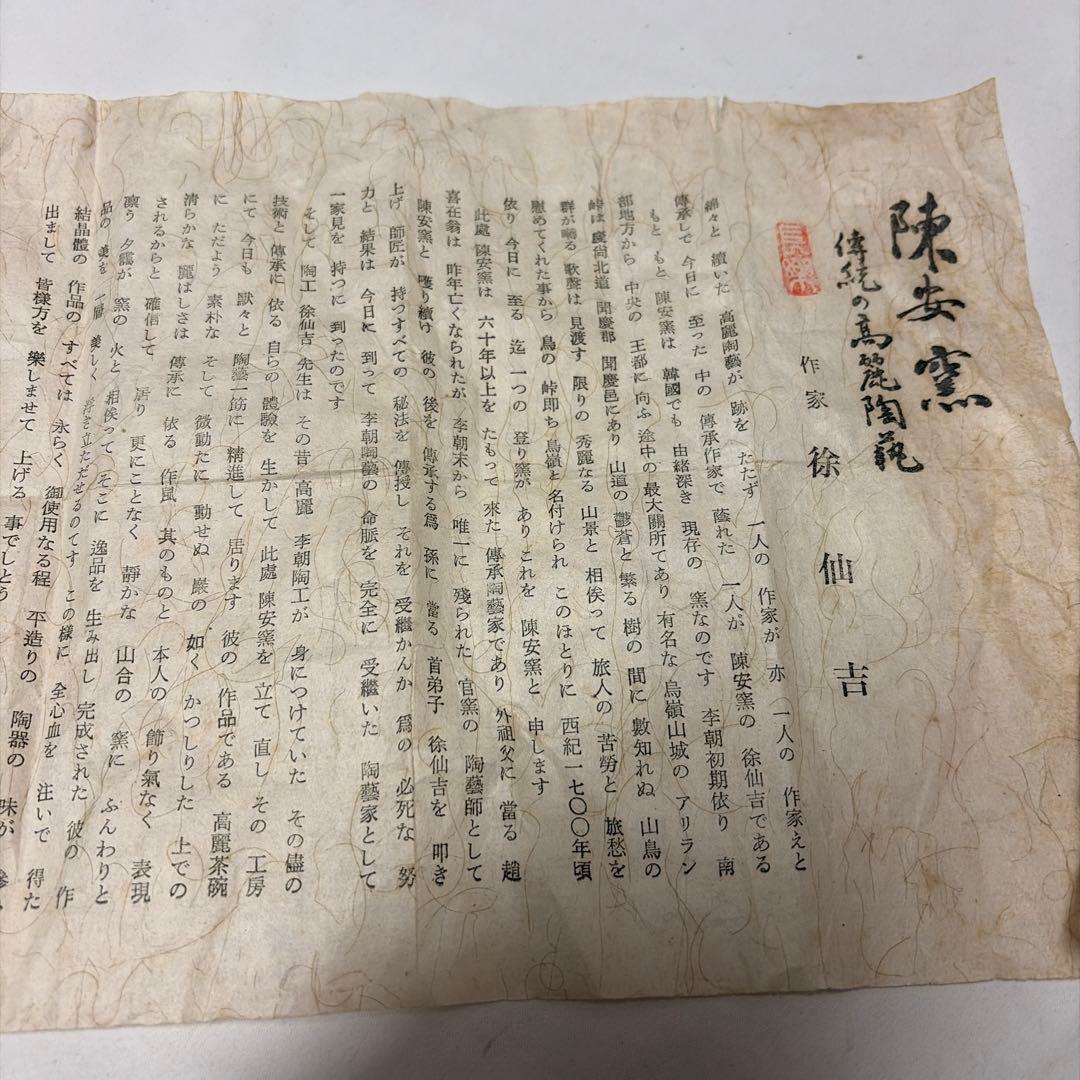 陳安窯
傳統の高麗陶藝
作家 徐仙吉
綿々と 續いた 高麗陶藝が 跡を たたず 一人の 作家が 亦 一人の 作家えと
傳承して 今日に 至った 中の 傳承作家で 蔭れた 一人が 陳安窯の 徐仙吉である
もと もと 陳安窯は 韓國でも 由緖深き 現存の 窯なのです 李朝初期依り 南
部地方から 中央の 王都に 向ふ 途中の 最大關所であり 有名な 鳥嶺山城の アリラン
峠は 慶尙北道 聞慶郡 聞慶邑にあり 山道の 鬱蒼と 繁る 樹の 間に 數知れぬ 山鳥の
群が 囀る 歌聲は 見渡す 限りの 秀麗なる 山景と 相俟って 旅人の 苦勞と 旅愁を
慰めてくれた事から 鳥の 峠即ち 鳥嶺と 名付けられ このほとりに 西紀一七〇〇年頃
依り 今日に 至る 迄 一つの 登り窯が ありこれを 陳安窯と 申します
此處 陳安窯は 六十年以上を たもって 來た 傳承陶藝家であり 外祖父に 當る 趙
喜在翁は 昨年亡くなられたが 李朝末から 唯一に 殘られた 官窯の 陶藝師として
陳安窯と 護り續け 彼の 後を 傳承する爲 孫に 當る 首弟子 徐仙吉を 叩き
上げ 師匠が 持つすべての 秘法を 傳授し それを 受繼かんか 爲の 必死な 努
力と 結果は 今日に 到って 李朝陶藝の 命脈を 完全に 受繼いた 陶藝家として
一家見を 持つに 到ったのです
そして 陶工 徐仙吉 先生は その昔 高麗 李朝陶工が 身につけていた その儘の
技術と 傳承に 依る 自らの 體驗を 生かして 此處 陳安窯を 立て 直し その 工房
にて 今日も 默々と 陶藝一筋に 精進して 居ります 彼の 作品である 高麗茶碗
に ただよう 素朴な そして 微動たに 動せぬ 嚴の 如く かつしりした 上での
淸らかな 麗はしさは 傳承に 依る 作風 其のものと 本人の 飾り氣なく 表現
されるからと 確信して 居り 更にことなく 靜かな 山合の 窯に ふんわりと
凛う 夕靄が 窯の 火と 相俟って そこに 逸品を 生み出し 完成された 彼の 作
品の 美を 一層 美しく 浮き立たせるのてす この樣に 全心血を 注いで 得た
結晶體の 作品の すべては 永らく 御使用なる程 平造りの 陶器の 味が
出まして 皆樣方を 樂しませて 上げる 事でしとう